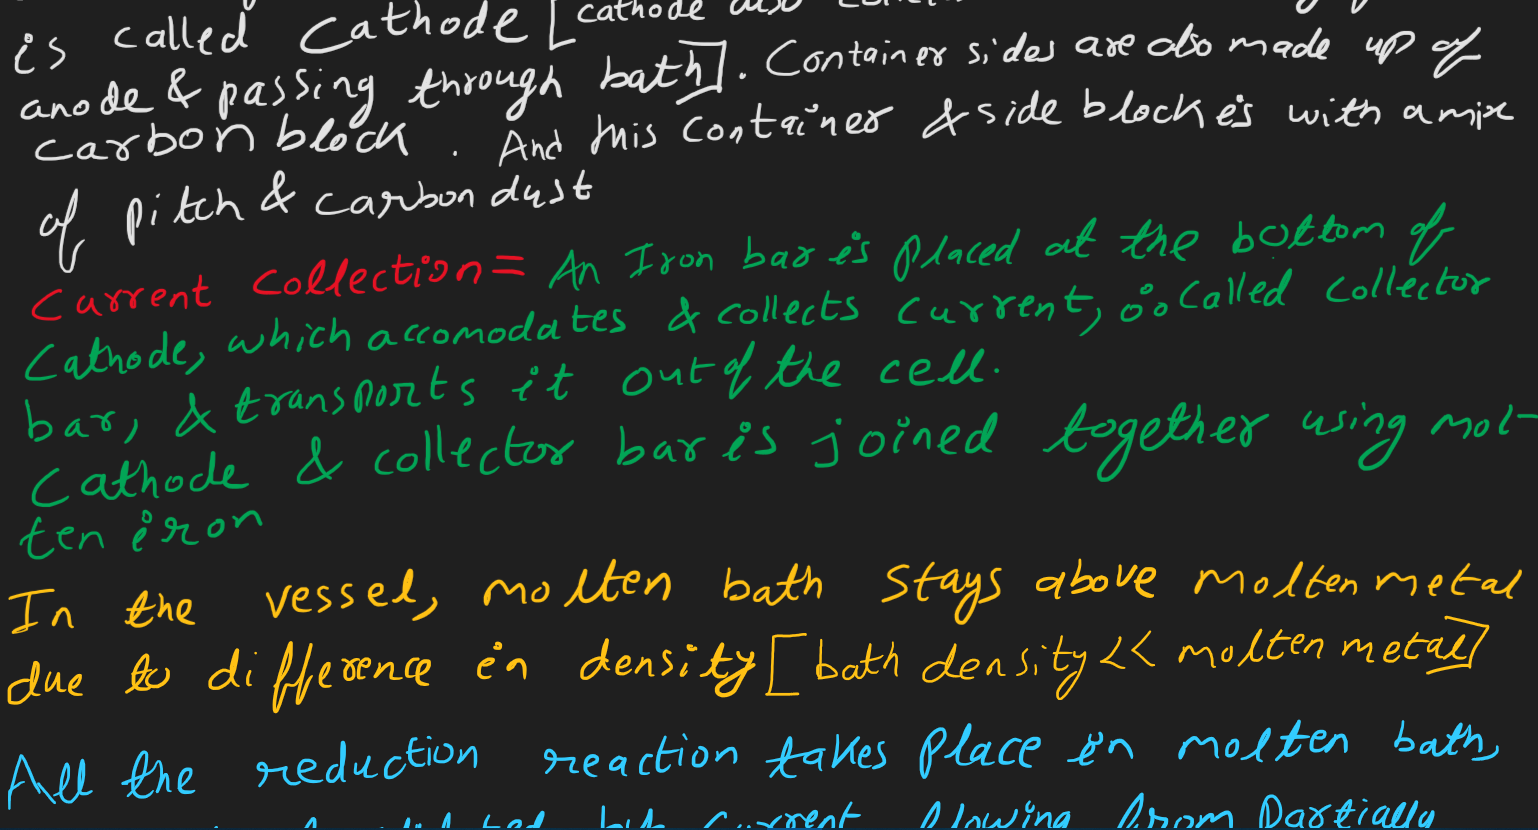 is called Cathode [cathode also
anode & passing through bath]. Container sides are also made up of
carbon block. And this container & side block is with a mix
of pitch & carbon dust
Current Collection = An Iron bar is placed at the bottom of
Cathode, which accomodates & collects current, ∴ called collector
bar, & transports it out of the cell.
Cathode & collector bar is joined together using mol-
ten iron
In the vessel, molten bath stays above molten metal
due to difference in density [bath density << molten metal]
All the reduction reaction takes place in molten bath,
by current flowing from partially